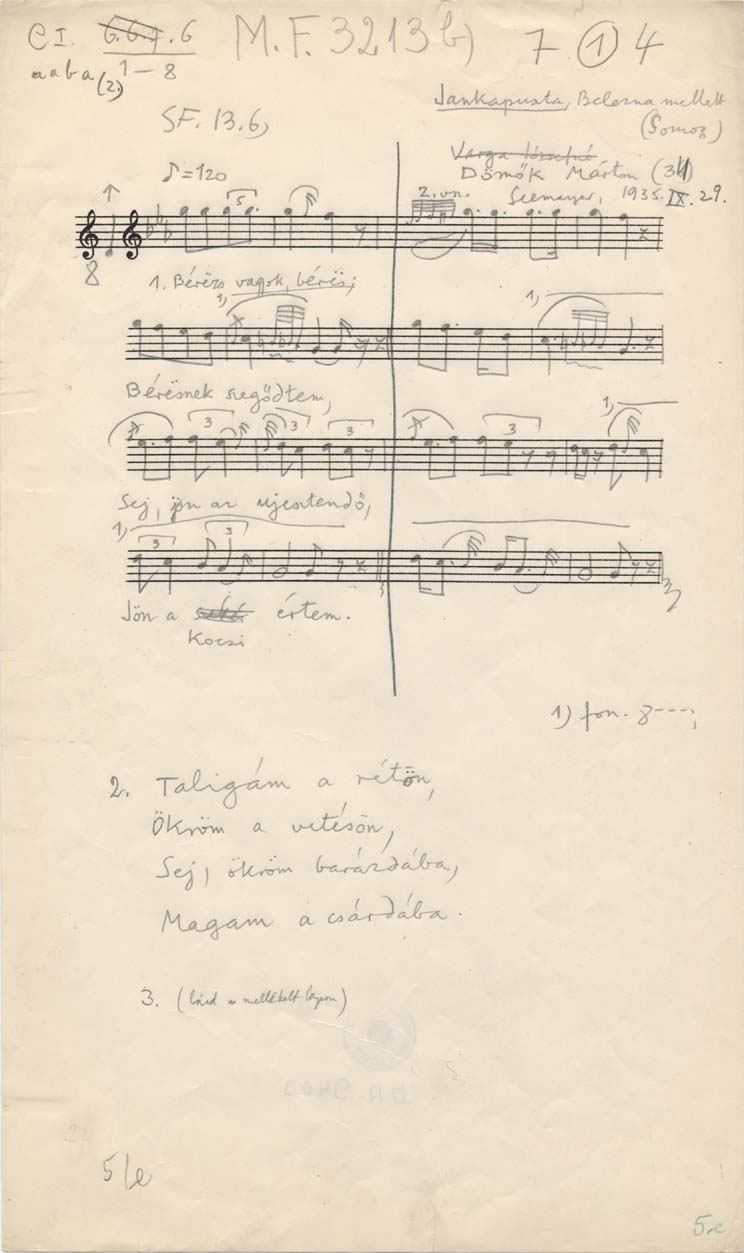 C I. 6.6.7.6 M.F. 3213 b) 7 ① 4
a a b a (2.) 1 – 8
Jankapuszta, Belezna mellett
(Somogy)
SF. 13.6,
Varga Józsefné
Dömők Márton (34)
♪=120
2. vn. Seemayer, 1935. IX. 29.
5
8
1. Bérëzs vagyok, bérës;
1) 1)
Bérësnek szegődtem,
3 3 3 3 1)
Sej, jön az ujesztendő,
1) 3 3
Jön a szekér értem.
Kocsi
1) fon. 8---;
2. Taligám a rétön,
Ökröm a vetésön,
Sej, ökröm barázdába,
Magam a csárdába.
3. (lásd a mellékelt lapon)
5/e
5e